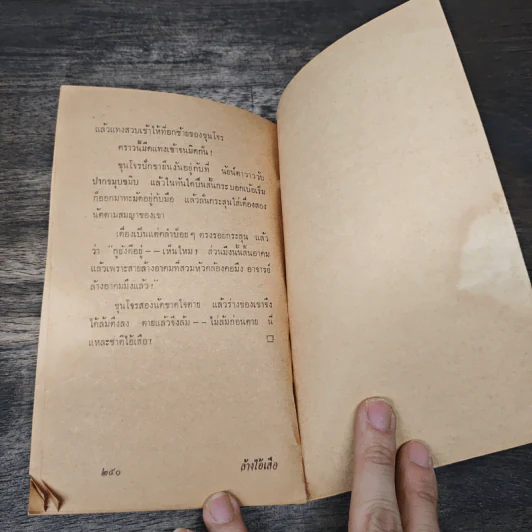 แล้วแทงสวบเข้าให้ที่อกซ้ายของขุนโจร
คราวนี้มีดแทงเข้าจนมิดกั่น !
ขุนโจรบึกชายืนงันอยู่กับที่ นัยน์ตาวาววับ
ปากขมุบขมิบ แล้วในทันใดปืนสั้นกระบอกเบ้อเริ่ม
ก็ออกมาทะมัดอยู่กับมือ แล้วลั่นกระสุนใส่เคืองสอง
นัดตามสมญาของเขา
เคืองเป็นแต่คลำป้อยๆ ตรงรอยกระสุน แล้ว
ว่า "กูยังดีอยู่ -- เห็นไหม ? ส่วนมึงนั้นสิ้นอาคม
แล้วเพราะสายล้างอาคมที่สวมหัวคล้องคอมึง อาจารย์
ล้างอาคมมึงแล้ว !"
ขุนโจรสองนัดขาดใจตาย แล้วร่างของเขาจึง
ได้ล้มตึงลง ตายแล้วจึงล้ม -- ไม่ล้มก่อนตาย นี่
แหละชาติไอ้เสือ !
๒๔๐
ล้างไอ้เสือ